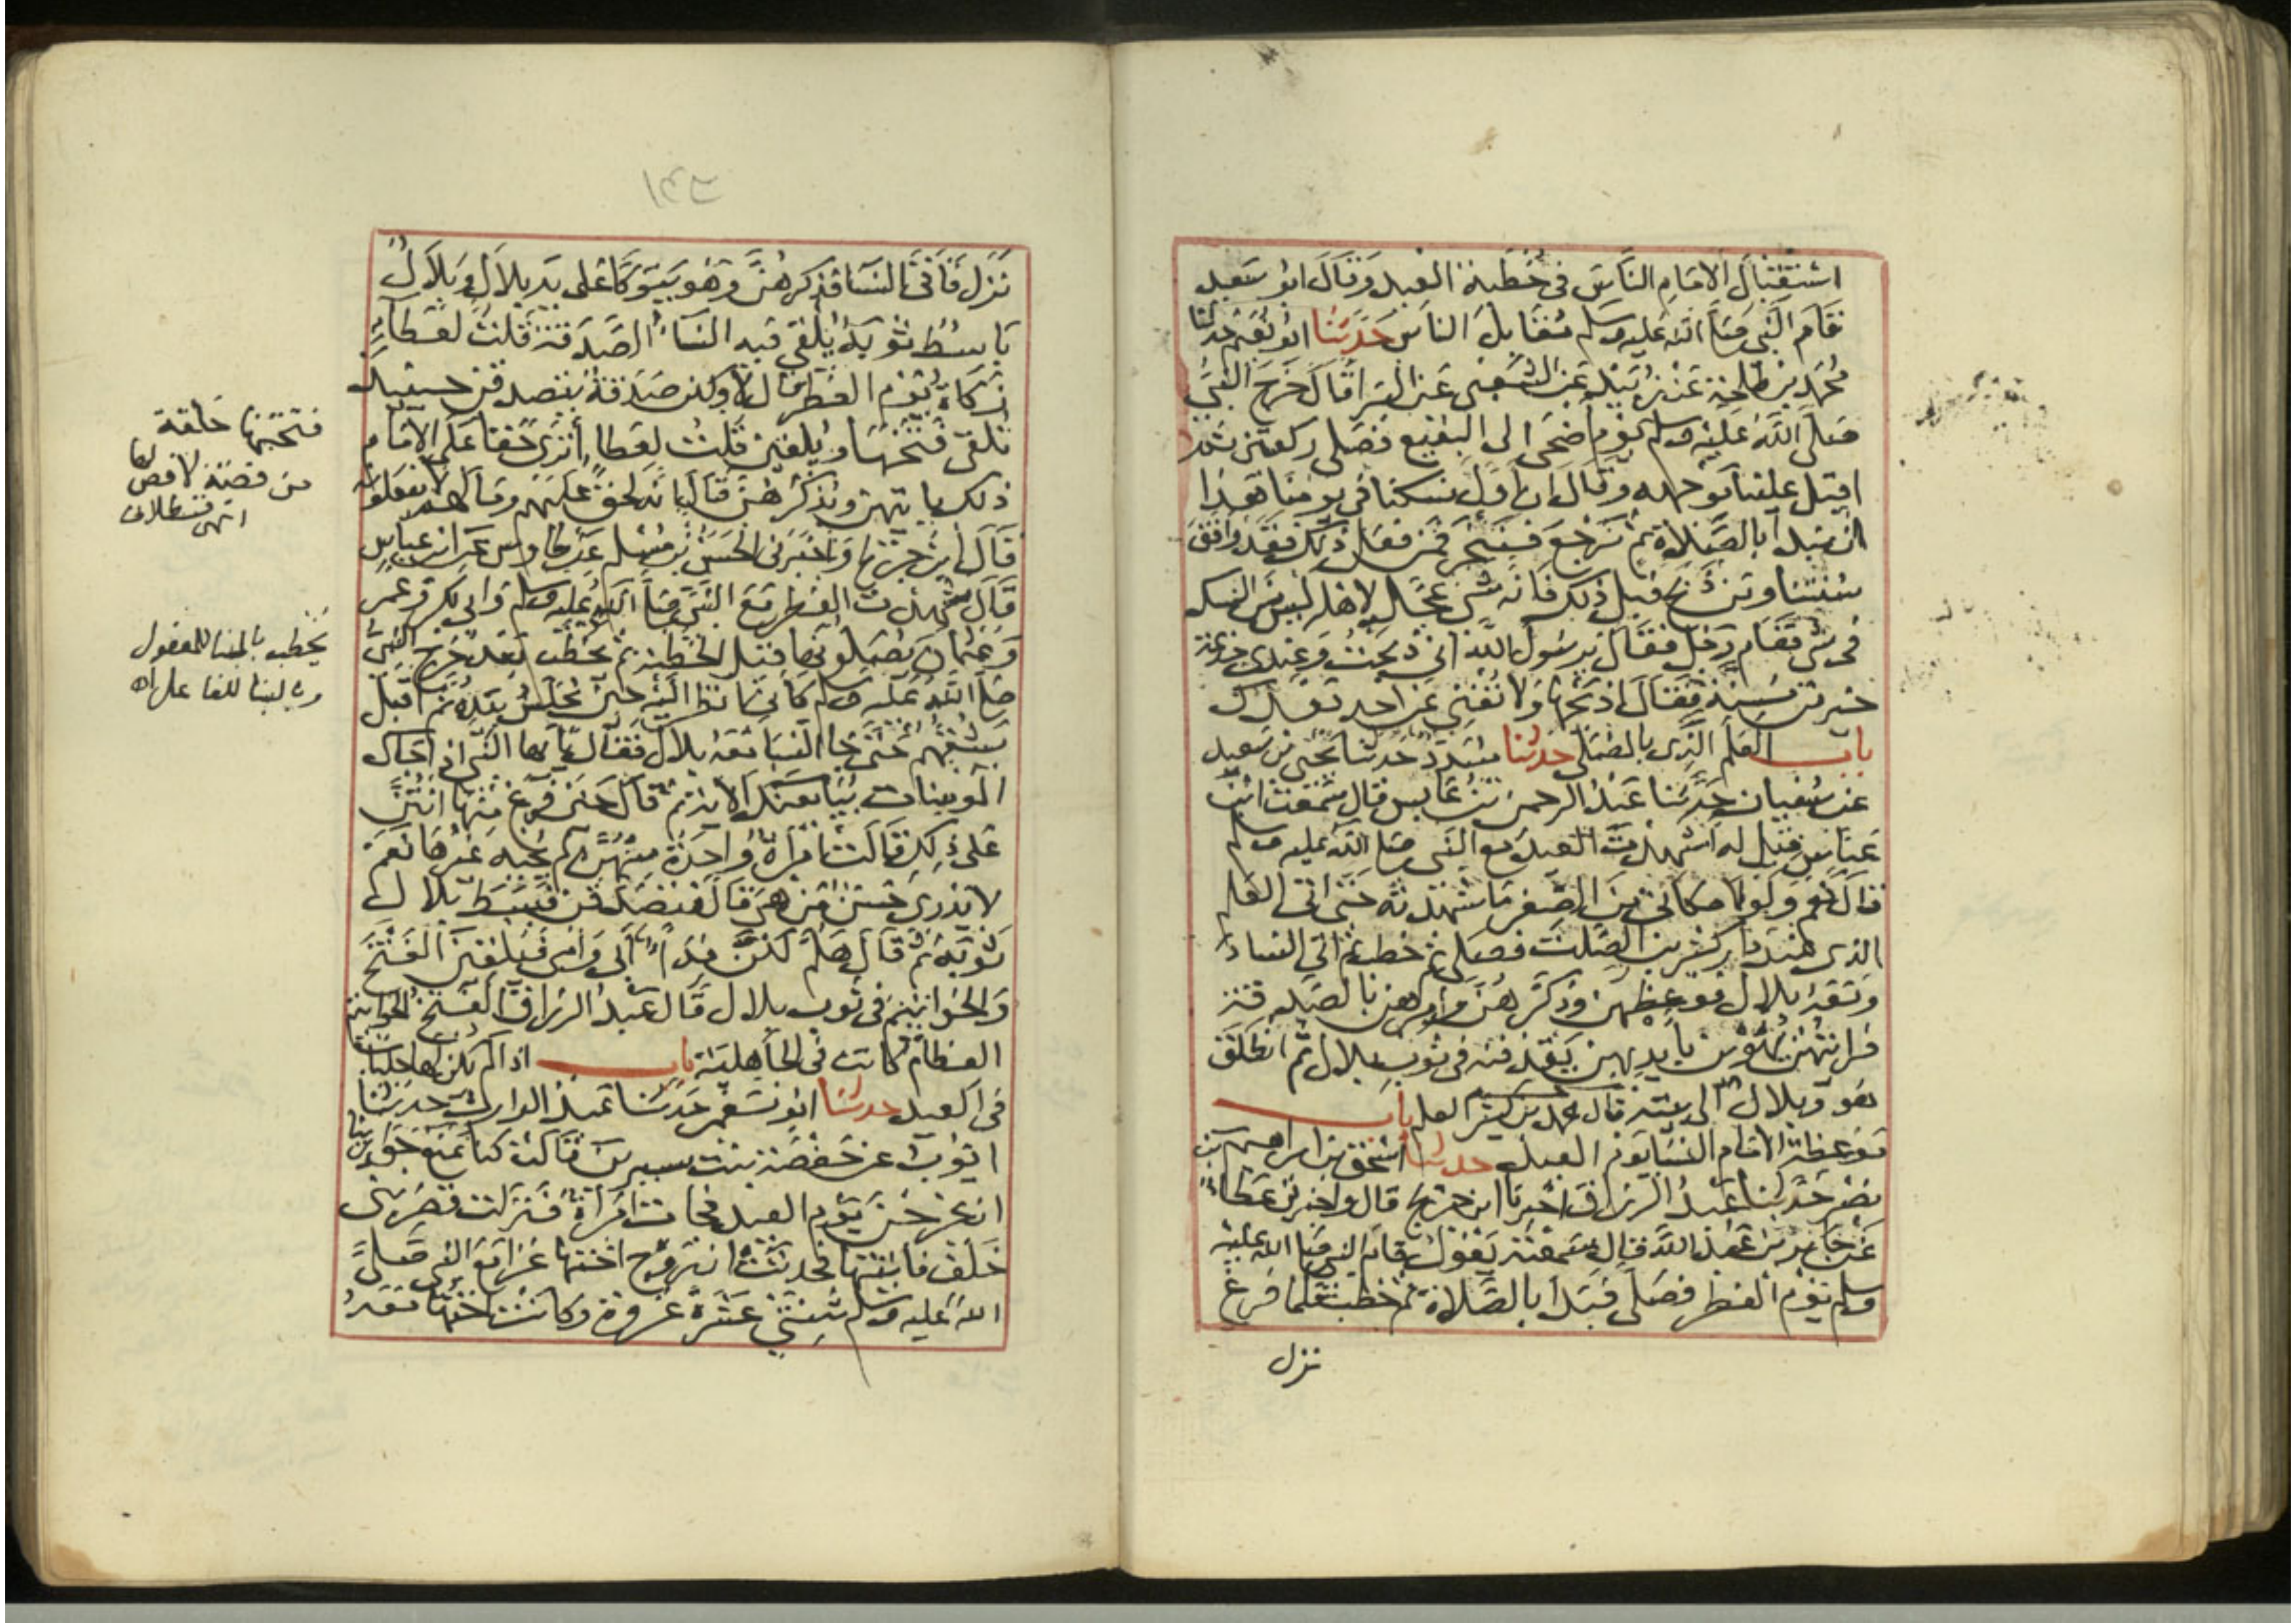 استقبال الامام الناس في خطبة العيد وقال ابو سعيد
قام النبي صلى الله عليه وسلم مقابل الناس حدثنا ابو نعيم حدثنا
محمد بن طلحة عن زبيد عن الشعبي عن البرا قال خرج النبي
صلى الله عليه وسلم يوم اضحى الى البقيع فصلى ركعتين ثم
اقبل علينا بوجهه وقال ان اول نسكنا في يومنا هذا
ان نبدا بالصلاة ثم نرجع فننحر فمن فعل ذلك فقد وافق
سنتنا ومن ذبح قبل ذلك فانه شي عجله لاهله ليس من النسك
في شي فقام رجل فقال يرسول الله اني ذبحت وعندي جذعة
خير من مسنة فقال اذبحها ولا تفي عن احد بعدك
باب العلم الذي بالمصلى حدثنا مسدد حدثنا يحيى بن سعيد
عن سفيان حدثنا عبد الرحمن بن عابس قال سمعت ابن
عباس قيل له اشهدت العيد مع النبي صلى الله عليه وسلم
قال نعم ولولا مكاني من الصغر ما شهدته حتى اتى العلم
الذي عند دار كثير بن الصلت فصلى ثم خطب ثم اتى النساء
ومعه بلال فوعظهن وذكرهن وامرهن بالصدقة
فرايتهن يهوين بايديهن يقذفنه في ثوب بلال ثم انطلق
هو وبلال الى بيته قال محمد بن كثير العلم باب
موعظة الامام النسا يوم العيد حدثنا اسحق بن ابراهيم بن
نصر حدثنا عبد الرزاق اخبرنا ابن جريج قال واخبرني عطاء
عن جابر بن عبد الله قال سمعته يقول قام النبي صلى الله عليه
وسلم يوم الفطر فصلى فبدا بالصلاة ثم خطب فلما فرغ
نزل
نزل فاتى النسا فذكرهن وهو يتوكا على يد بلال وبلال
باسط ثوبه يلقي فيه النساء الصدقة قلت لعطاء
زكاة يوم الفطر قال لا ولكن صدقة يتصدقن حينيذ
تلقي فتخها ويلقين قلت لعطا اترى حقا على الامام
ذلك ياتيهن ويذكرهن قال انه لحق عليهم وما لهم لا يفعلونه
قال ابن جريج واخبرني الحسن بن مسلم عن طاوس عن ابن عباس
قال شهدت الفطر مع النبي صلى الله عليه وسلم وابي بكر وعمر
وعثمان يصلونها قبل الخطبة ثم يخطب بعد خرج النبي
صلى الله عليه وسلم كاني انظر اليه حين يجلس بيده ثم اقبل
يشقهم حتى جا النسا معه بلال فقال يا ايها النبي اذا جاك
المومنات يبايعنك الاية ثم قال حين فرغ منها انتن
على ذلك قالت امراة واحدة منهن لم يجبه غيرها نعم
لا يدري حسن من هي قال فتصدقن فبسط بلال
ثوبه ثم قال هلم لكن فداء ابي وامي فيلقين الفتخ
والخواتيم في ثوب بلال قال عبد الرزاق الفتخ الخواتيم
العظام كانت في الجاهلية باب اذا لم يكن لها جلباب
في العيد حدثنا ابو معمر حدثنا عبد الوارث حدثنا
ايوب عن حفصة بنت سيرين قالت كنا نمنع جوارينا
ان يخرجن يوم العيد فجات امراة فنزلت قصر بني
خلف فاتيتها فحدثت ان زوج اختها غزا مع النبي صلى
الله عليه وسلم ثنتي عشرة غزوة وكانت اختها معه
فتختها حلقة
من فضة لا فص لها
انتهى قسطلاني
يخطب بالبنا للمفعول
وبالبنا للفاعل اه